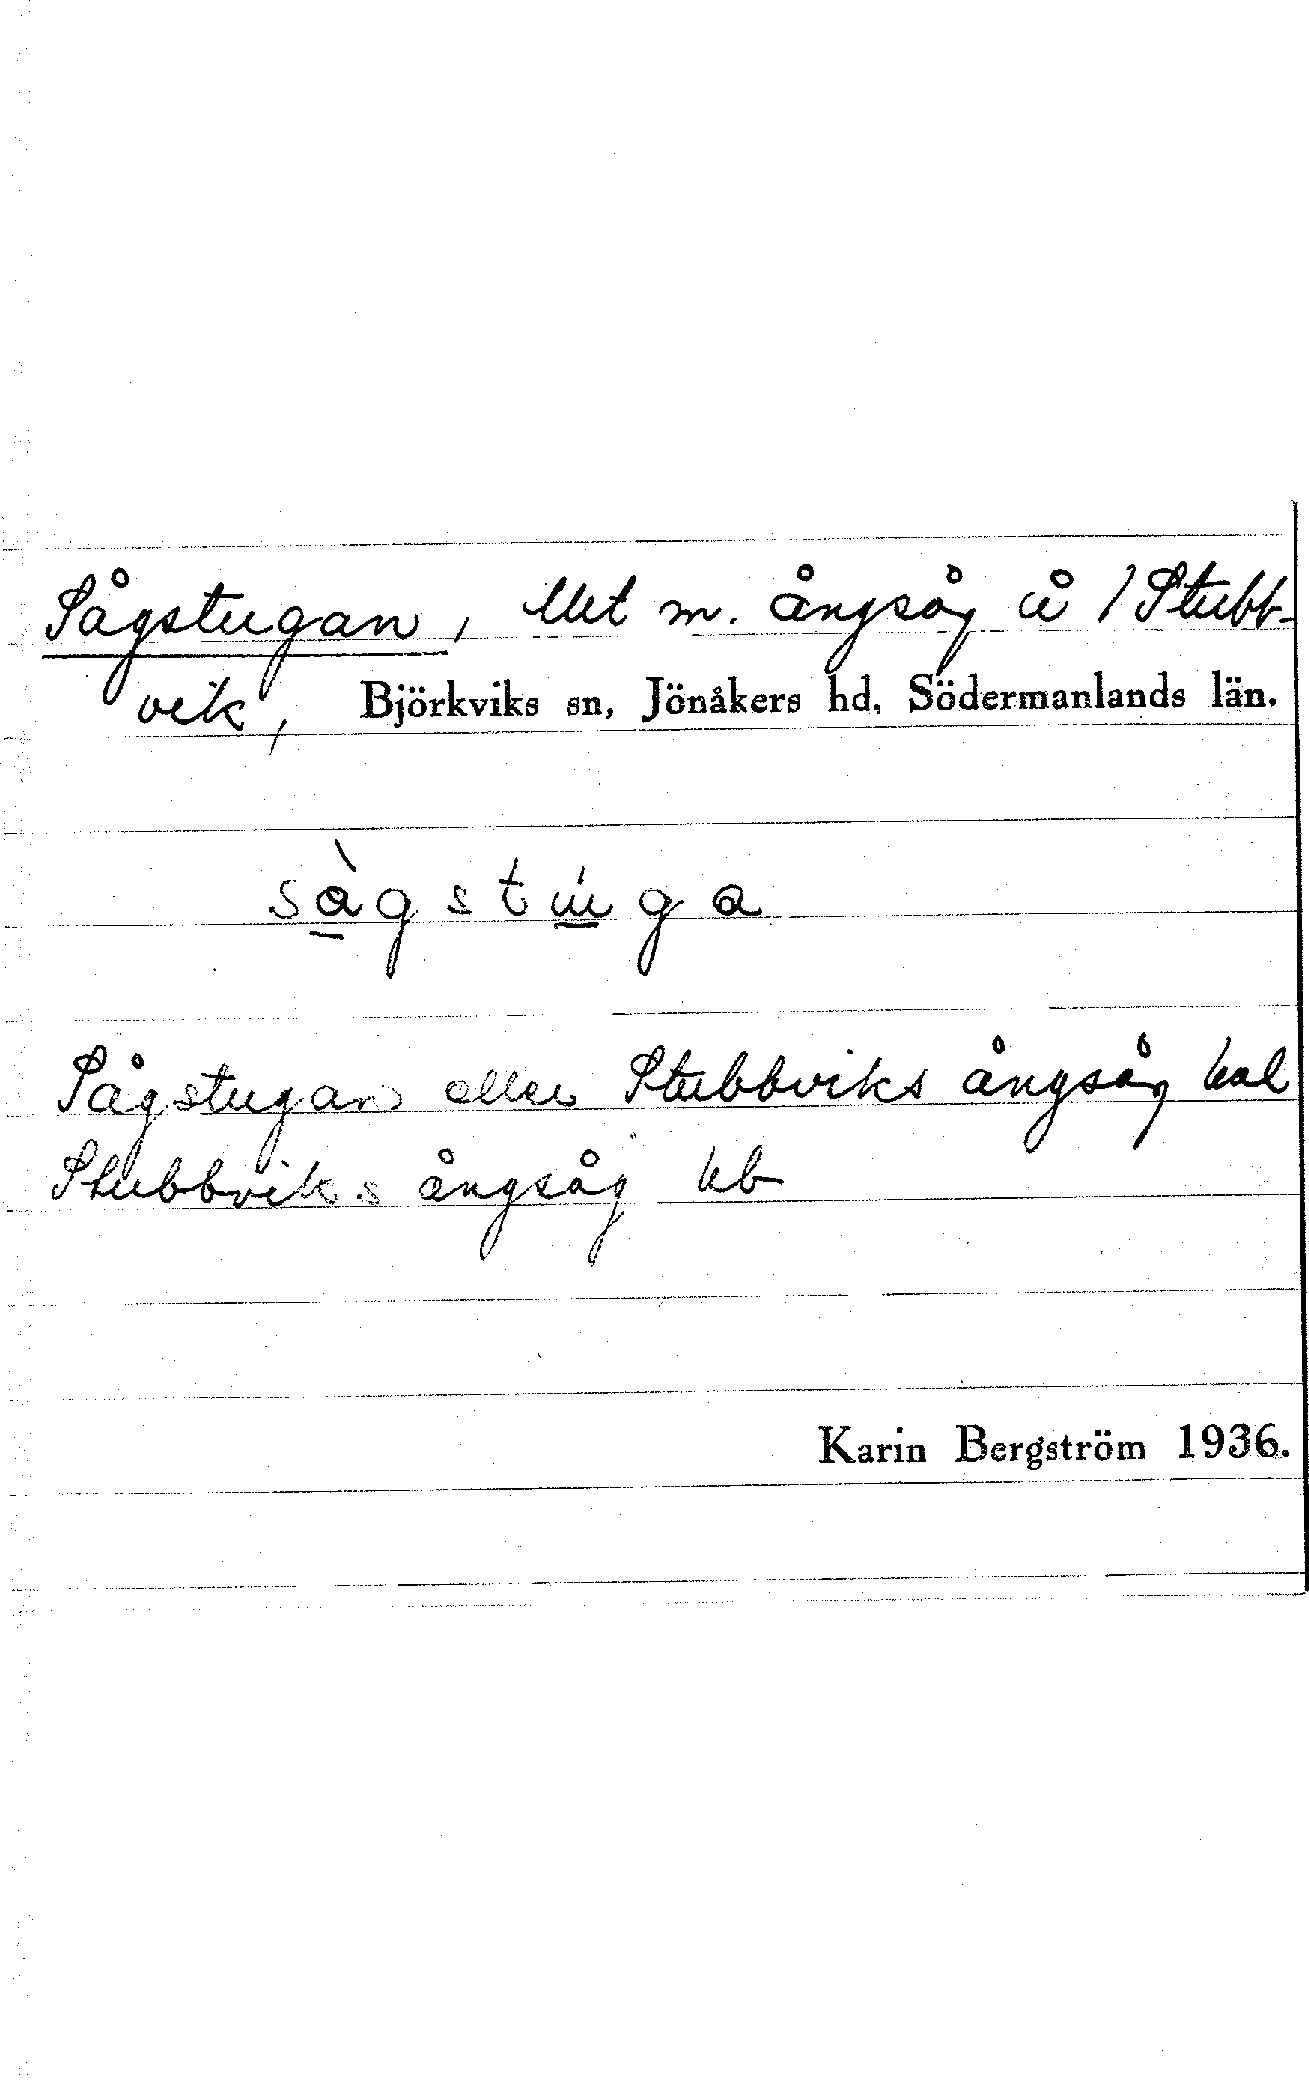 Sågstugan, lht m. ångsåg å 1 Stubb-
vik, Björkviks sn, Jönåkers hd, Södermanlands län.
sàgstúga
Sågstugan eller Stubbviks ångsåg
Stubbviks ångsåg
Karin Bergström 1936.